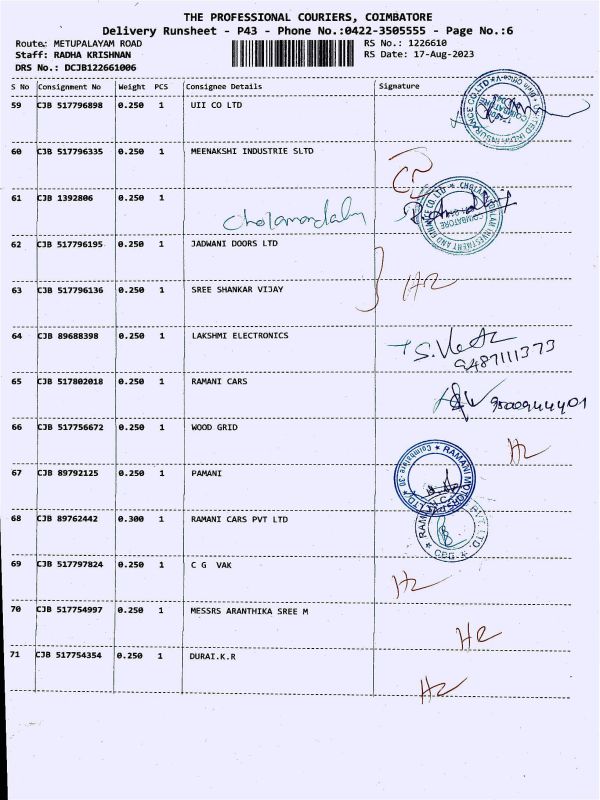 THE PROFESSIONAL COURIERS, COIMBATORE
Delivery Runsheet - P43 - Phone No.:0422-3505555 - Page No.:6
Route: METUPALAYAM ROAD
RS No.: 1226610
Staff: RADHA KRISHNAN
RS Date: 17-Aug-2023
DRS No.: DCJB122661006
S No Consignment No Weight PCS Consignee Details Signature
59 CJB 517796898 0.250 1 UII CO LTD
60 CJB 517796335 0.250 1 MEENAKSHI INDUSTRIE SLTD
61 CJB 1392806 0.250 1
Cholamandalam
62 CJB 517796195 0.250 1 JADWANI DOORS LTD
63 CJB 517796136 0.250 1 SREE SHANKAR VIJAY
64 CJB 89688398 0.250 1 LAKSHMI ELECTRONICS
9487111373
65 CJB 517802018 0.250 1 RAMANI CARS
9500944401
66 CJB 517756672 0.250 1 WOOD GRID
67 CJB 89792125 0.250 1 PAMANI
68 CJB 89762442 0.300 1 RAMANI CARS PVT LTD
69 CJB 517797824 0.250 1 C G VAK
70 CJB 517754997 0.250 1 MESSRS ARANTHIKA SREE M
71 CJB 517754354 0.250 1 DURAI.K.R